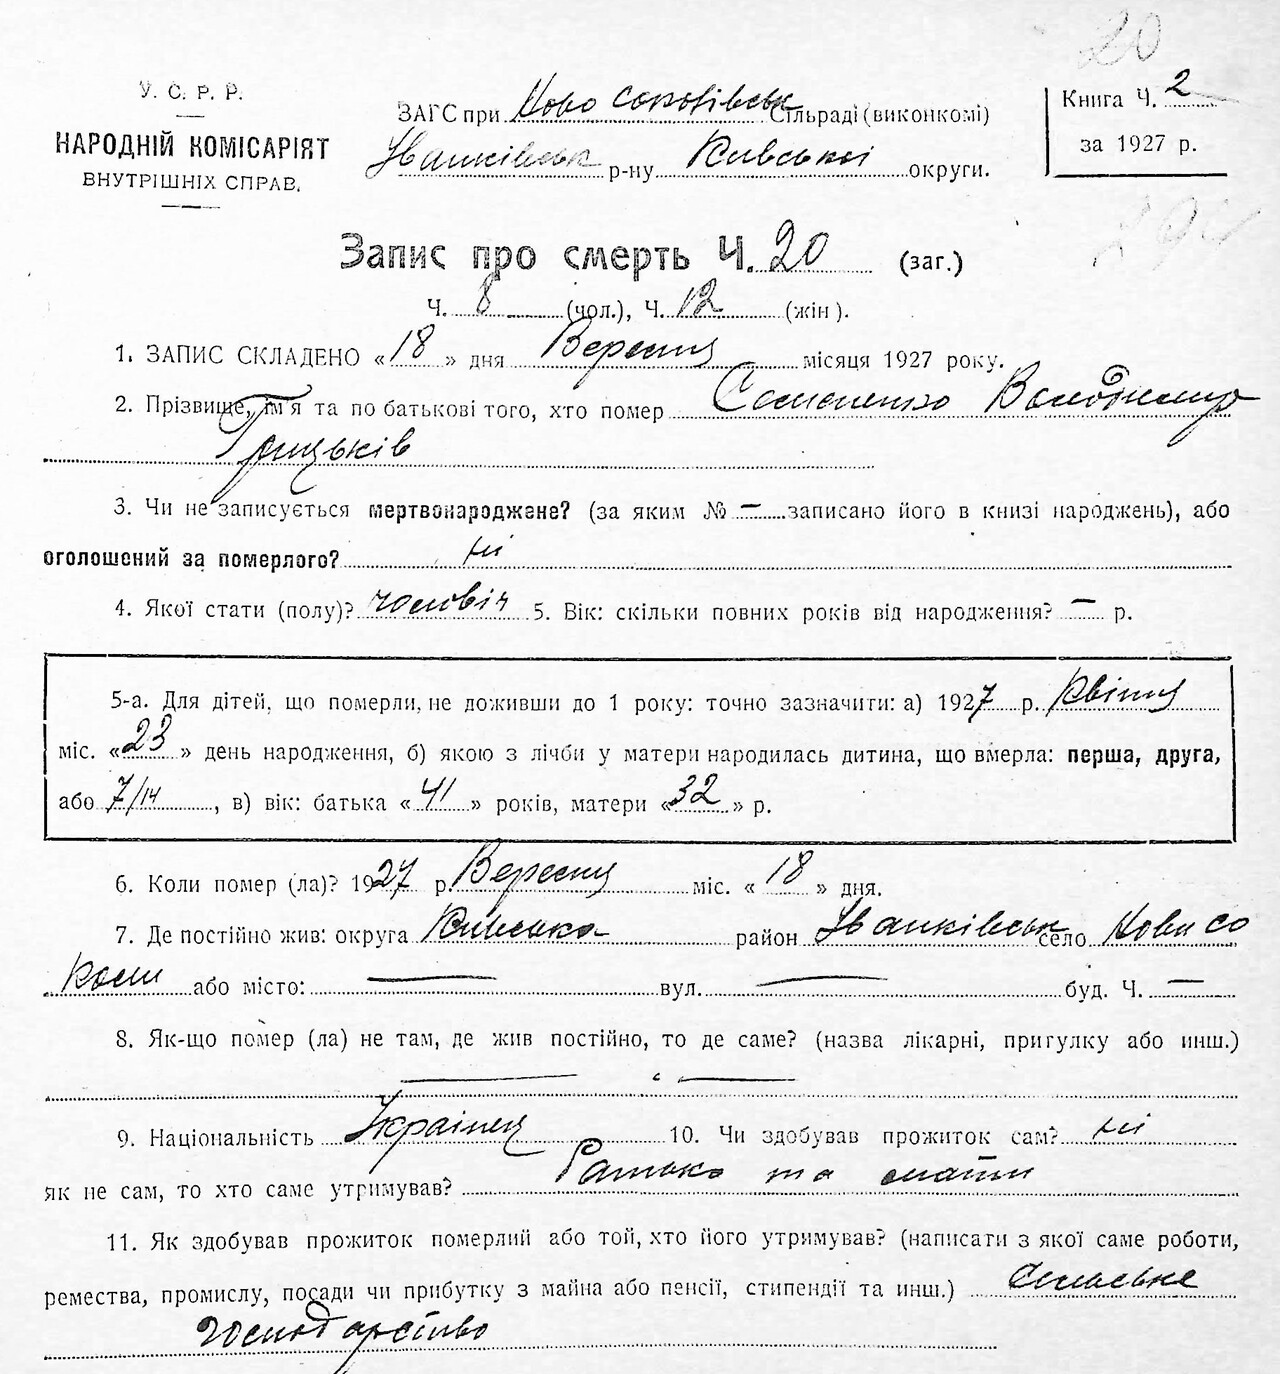 20
У. С. Р. Р.
НАРОДНІЙ КОМІСАРІЯТ
ВНУТРІШНІХ СПРАВ.
ЗАГС при Ново Соколівськ Сільраді (виконкомі)
Іванківськ р-ну Київської округи.
Книга Ч. 2
за 1927 р.
Запис про смерть Ч. 20 (заг.)
Ч. 8 (чол.), Ч. 12 (жін).
1. ЗАПИС СКЛАДЕНО «18» дня Вересня місяця 1927 року.
2. Прізвище, ім'я та по батькові того, хто помер Володимир
Грицьків
3. Чи не записується мертвонароджене? (за яким № — записано його в книзі народжень), або
оголошений за померлого? ні
4. Якої стати (полу)? чоловіч 5. Вік: скільки повних років від народження? — р.
5-а. Для дітей, що померли, не доживши до 1 року: точно зазначити: а) 1927 р. Квітня
міс. «23» день народження, б) якою з лічби у матери народилась дитина, що вмерла: перша, друга,
або 7/14, в) вік: батька «41» років, матери «32» р.
6. Коли помер (ла)? 1927 р. Вересня міс. «18» дня.
7. Де постійно жив: округа Київська район Іванківськ село Нови Со
коли або місто: — вул. — буд. Ч. —
8. Як-що помер (ла) не там, де жив постійно, то де саме? (назва лікарні, пригулку або инш.)
9. Національність Українец 10. Чи здобував прожиток сам? ні
як не сам, то хто саме утримував? Батько та мати
11. Як здобував прожиток померлий або той, хто його утримував? (написати з якої саме роботи,
ремества, промислу, посади чи прибутку з майна або пенсії, стипендії та инш.) Сільське
господарство